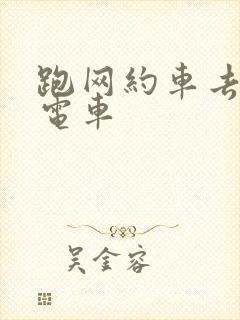 跑网約車去
電車
吴金容